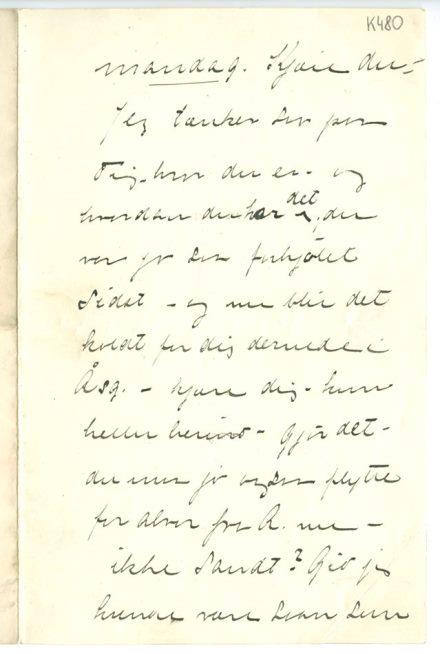 K480
mandag. Kjære du –
Jeg tænker så på
Dig – hvor du er – og
hvordan du har det, du
var jo så forkjølet
sidst – og nu blir det
koldt for dig dernede i
Åsg. – kjære dig – kom
heller herind – Gjør det –
du må jo også flytte
for alvor fra A. nu –
ikke sandt? Gid jeg
kunde være sån som